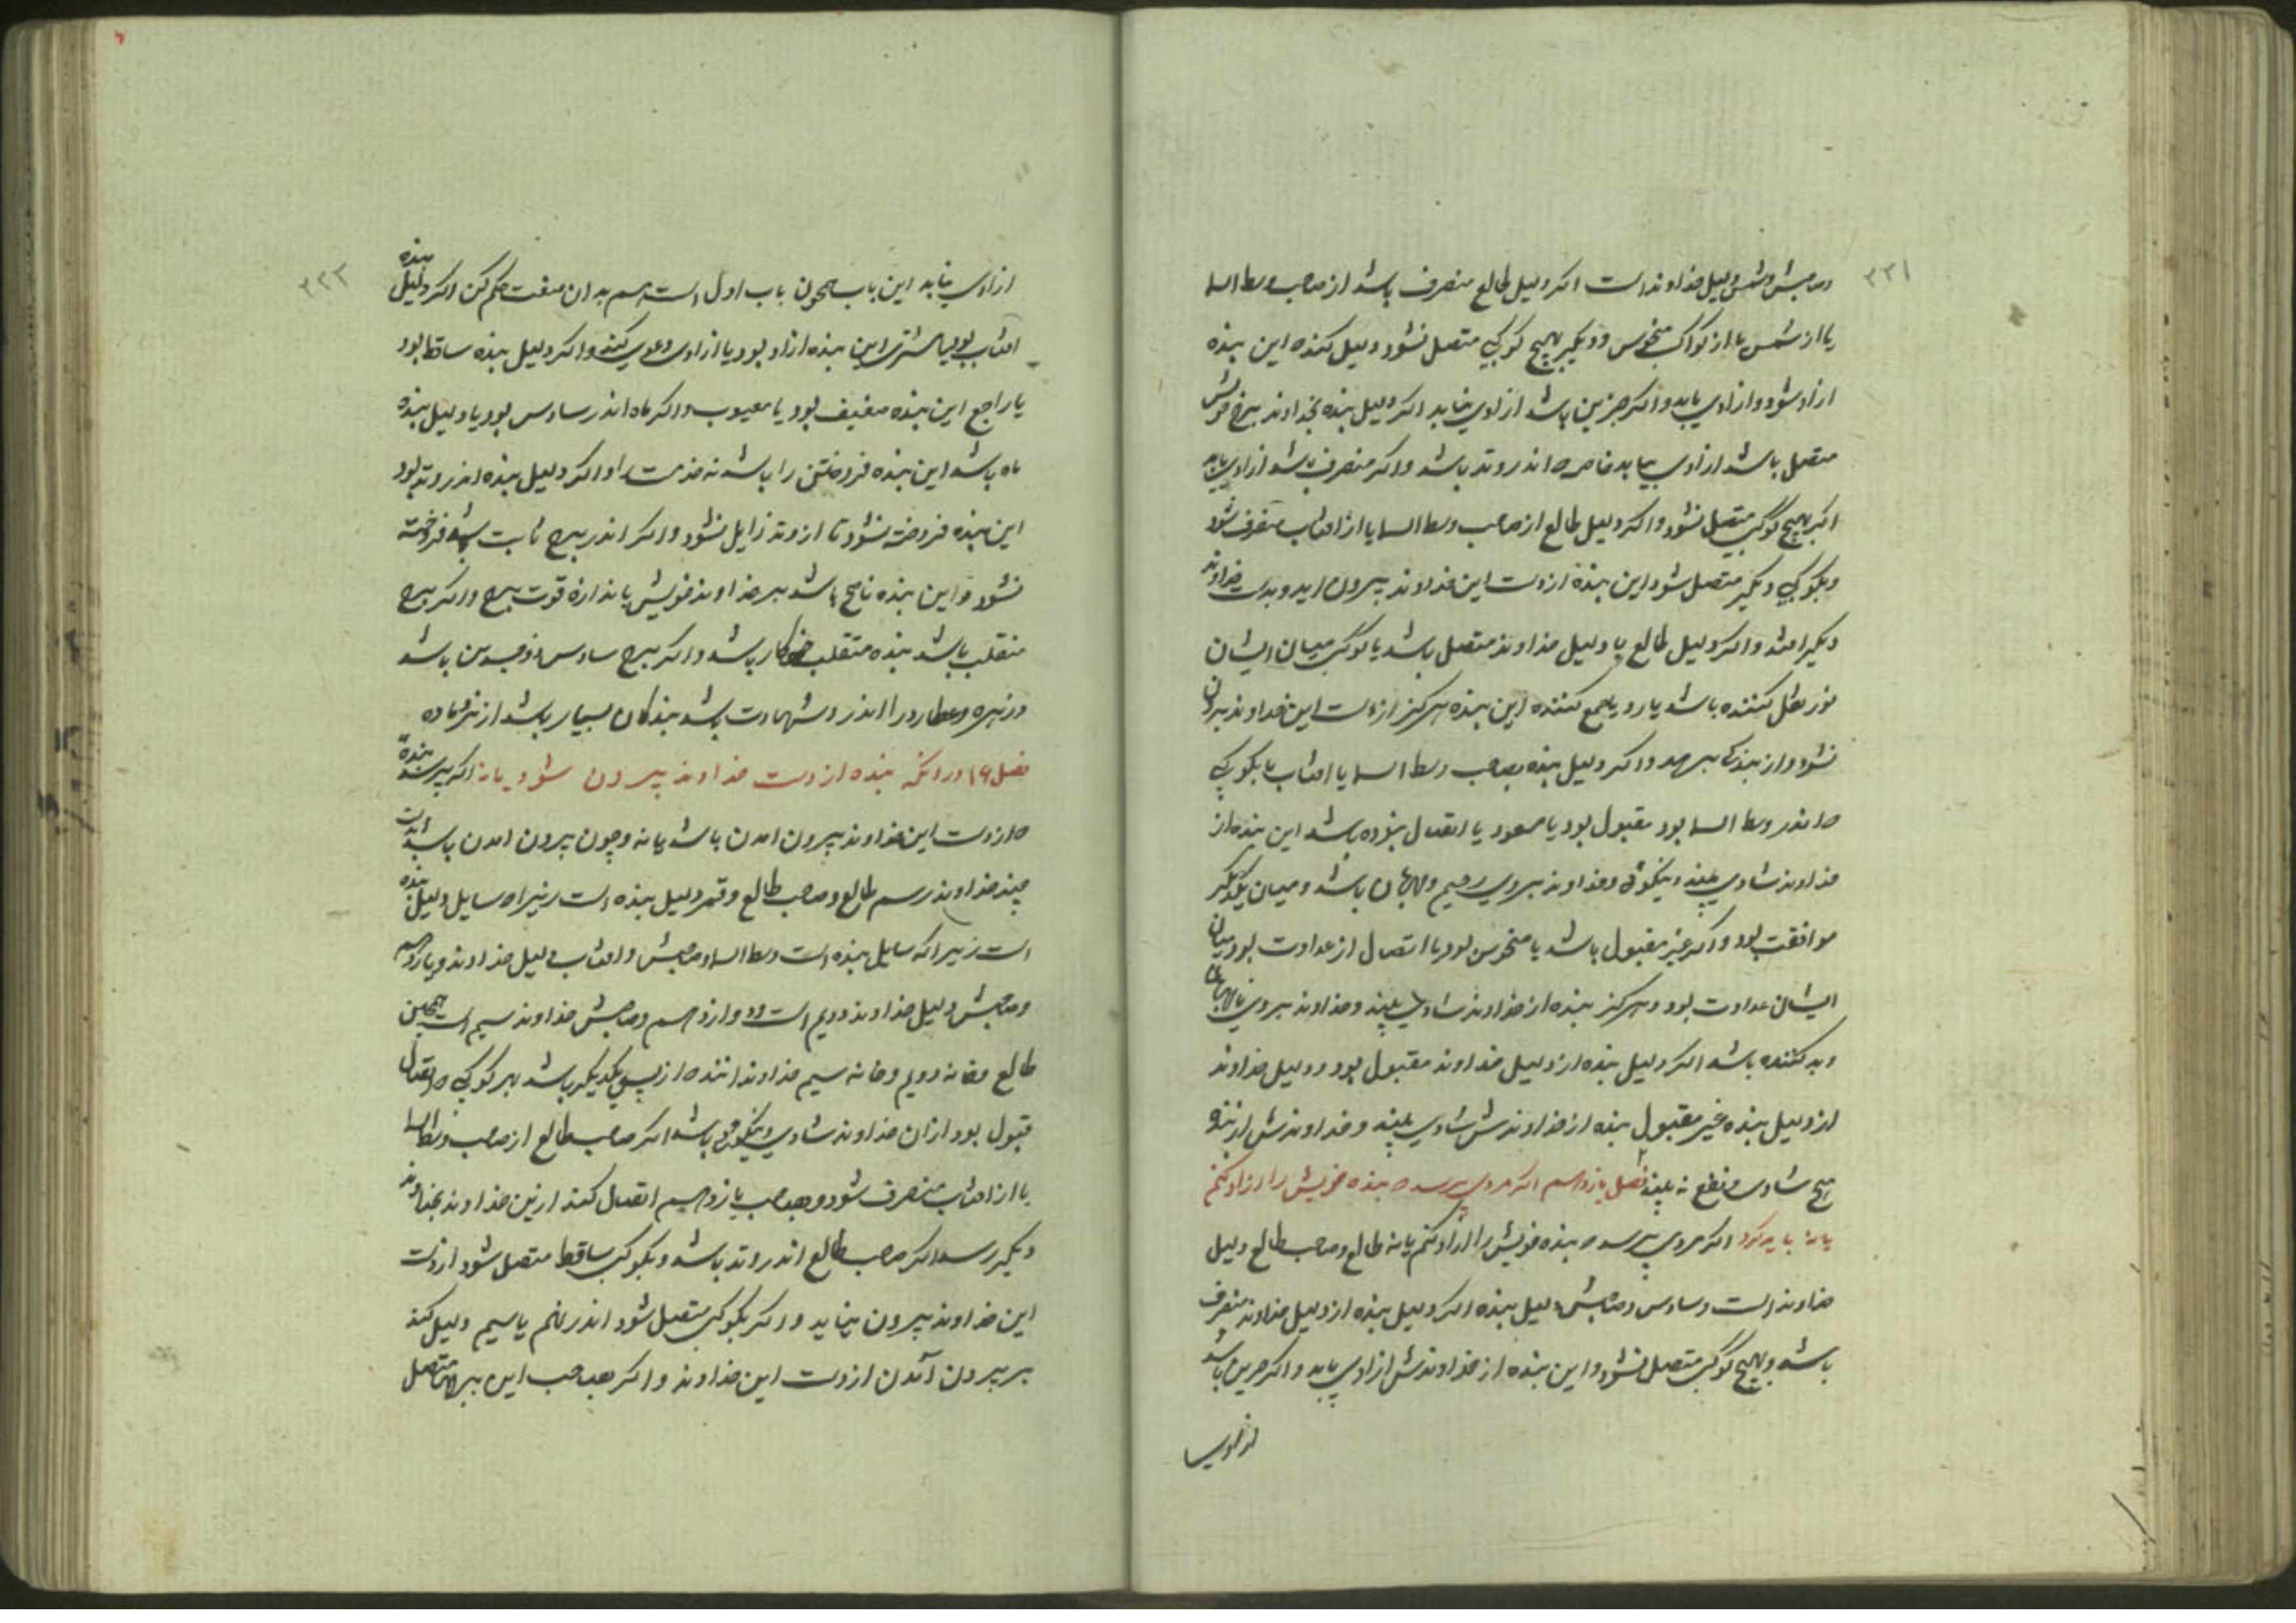 ۳۲۱
وصاحبش وشمس دلیل خداوند است اکر دلیل طالع منصرف باشد از صاحب وسط السا
یا از شمس یا از کواکب منحوس ودیکر بهیچ کوکبی متصل نشود دلیل کند ه این بنده
ازاد شود وازادی یابد واکر جز این باشد ازادی نیابد اکر دلیل بنده بخداوند برج خویش
متصل باشد ازادی بیابد خاصه ه اندر وتد باشد واکر منصرف باشد ازادی یابد
اکر بهیچ کوکب متصل نشود واکر دلیل طالع از صاحب وسط السا یا از افتاب منصرف شود
وبکوکبی دیکر متصل شود این بنده از دست این خداوند بیرون اید وبدست خداوند
دیکر افتد واکر دلیل طالع با دلیل خداوند متصل باشد یا کوکب میان ایشان
نور نقل کننده باشد یا رد یا جمع کننده این بنده هرکز از دست این خداوند بیرون
نشود واز بندکی نرهد واکر دلیل بنده بصاحب وسط السا یا افتاب یا بکوکبی
ه اندر وسط السا بود مقبول بود یا مسعود یا اتصال بنوده باشد این بنده از
خداوند شادی بیند ونیکوئی وخداوند بروی رحیم ومهربان باشد ومیان یکدیکر
موافقت بود واکر غیر مقبول باشد یا منحوس بود یا اتصال از عداوت بود میان
ایشان عداوت بود وهرکز بنده از خداوند شادی نبیند وخداوند بروی نامهربان
وبد کننده باشد اکر دلیل بنده از دلیل خداوند مقبول بود ودلیل خداوند
از دلیل بنده غیر مقبول بنده از خداوندش شادی بیند وخداوندش از بنده
هیچ شادی ونفع نه بیند فصل یازدهم اکر مردی پرسد ه بنده خویش را ازاد کنم
یا نه باید کرد اکر مردی پرسد ه بنده خویش را ازاد کنم یا نه طالع وصاحب طالع دلیل
خداوند است وسادس وصاحبش دلیل بنده اکر دلیل بنده از دلیل خداوند منصرف
باشد وبهیچ کوکب متصل نشود این بنده از خداوندش ازادی یابد واکر جز این باشد
۳۲۲
ازادی نیابد این باب همچون باب اول است هم بدان صفت حکم کن اکر دلیل بنده
افتاب بود یا مشتری این بنده ازاد بود یا ازادی دعوی کند واکر دلیل بنده ساقط بود
یا راجع این بنده ضعیف بود یا معیوب واکر ماه اندر سادس بود یا دلیل بنده
ماه باشد این بنده فروختن را باشد نه خدمت را واکر دلیل بنده اندر وتد بود
این بنده فروخته نشود تا از وتد زایل نشود واکر اندر برج ثابت باشد فروخته
نشود واین بنده ناصح باشد بر خداوند خویش باندازه قوت برج واکر برج
منقلب باشد بنده متقلب کار باشد واکر برج سادس ذوجسدین باشد
وزهره وعطارد را اندر و شهادت باشد بندکان بسیار باشد از نر وماده
فصل ۱۶ در انکه بنده از دست خداوند بیرون شود یا نه اکر پرسد بنده
ه از دست این خداوند بیرون امدن باشد یا نه وچون بیرون امدن باشد بدست
چند خداوند رسم طالع وصاحب طالع وقمر دلیل بنده است زیرا ه سایل دلیل بنده
است زیرا که سایل بنده است وسط السا وصاحبش وافتاب دلیل خداوند ویازدهم
وصاحبش دلیل خداوند دویم است ودوازدهم وصاحبش خداوند سیم است همچنین
طالع وخانه دویم وخانه سیم خداوندانند ه از پس یکدیکر باشد بهر کوکبی ه اتصال
قبول بود از ان خداوند شادی ونیکوئی باشد اکر صاحب طالع از صاحب وسط السا
یا از افتاب منصرف شود وبصاحب یازدهم اتصال کند ازین خداوند بخداوند
دیکر رسد اکر صاحب طالع اندر وتد باشد وبکوکب ساقط متصل شود از دست
این خداوند بیرون نیاید واکر بکوکب متصل شود اندر نهم یا سیم دلیل کند
بر بیرون آمدن از دست این خداوند واکر بصاحب این برجها متصل